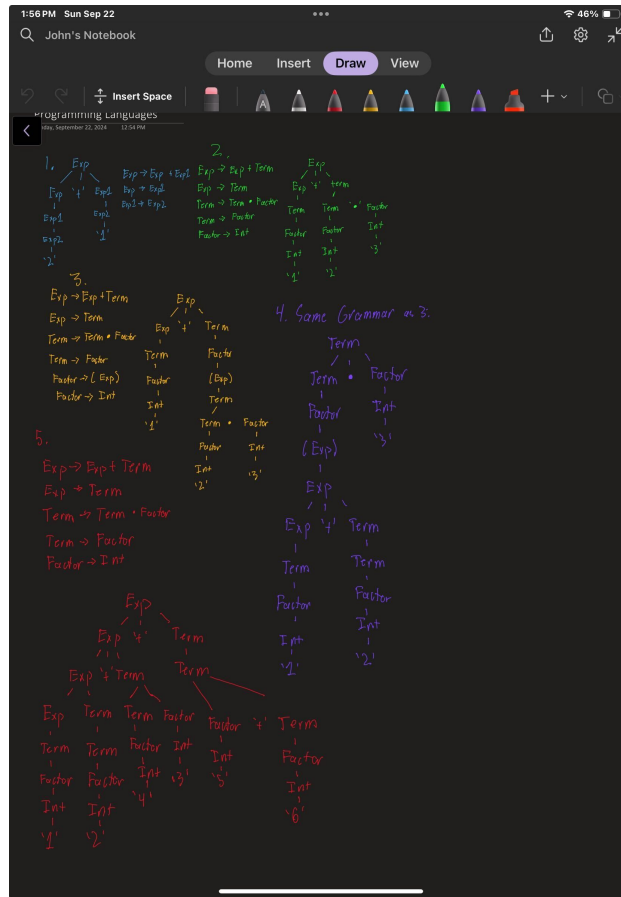 1:56 PM Sun Sep 22
46%
John's Notebook
Home Insert Draw View
Insert Space
A
Programming Languages
day, September 22, 2024 12:54 PM
1.
Exp
Exp '+' Exp1
Exp1 Exp2
Exp2 '1'
'2'
Exp → Exp + Exp1
Exp → Exp1
Exp1 → Exp2
2.
Exp → Exp + Term
Exp → Term
Term → Term • Factor
Term → Factor
Factor → Int
Exp
Exp '+' term
Term Term '•' Factor
Factor Factor Int
Int Int '3'
'1' '2'
3.
Exp → Exp + Term
Exp → Term
Term → Term • Factor
Term → Factor
Factor → (Exp)
Factor → Int
Exp
Exp '+' Term
Term Factor
Factor (Exp)
Int Term
'1' Term • Factor
Factor Int
Int '3'
'2'
4. Same Grammar as 3.
Term
Term • Factor
Factor Int
(Exp) '3'
Exp
Exp '+' Term
Term Term
Factor Factor
Int Int
'1' '2'
5.
Exp → Exp + Term
Exp → Term
Term → Term • Factor
Term → Factor
Factor → Int
Exp
Exp '+' Term
Exp '+' Term Term
Exp Term Term Factor Factor '+' Term
Term Term Factor Int Int Factor
Factor Factor Int '3' '5' Int
Int Int '4' '6'
'1' '2'